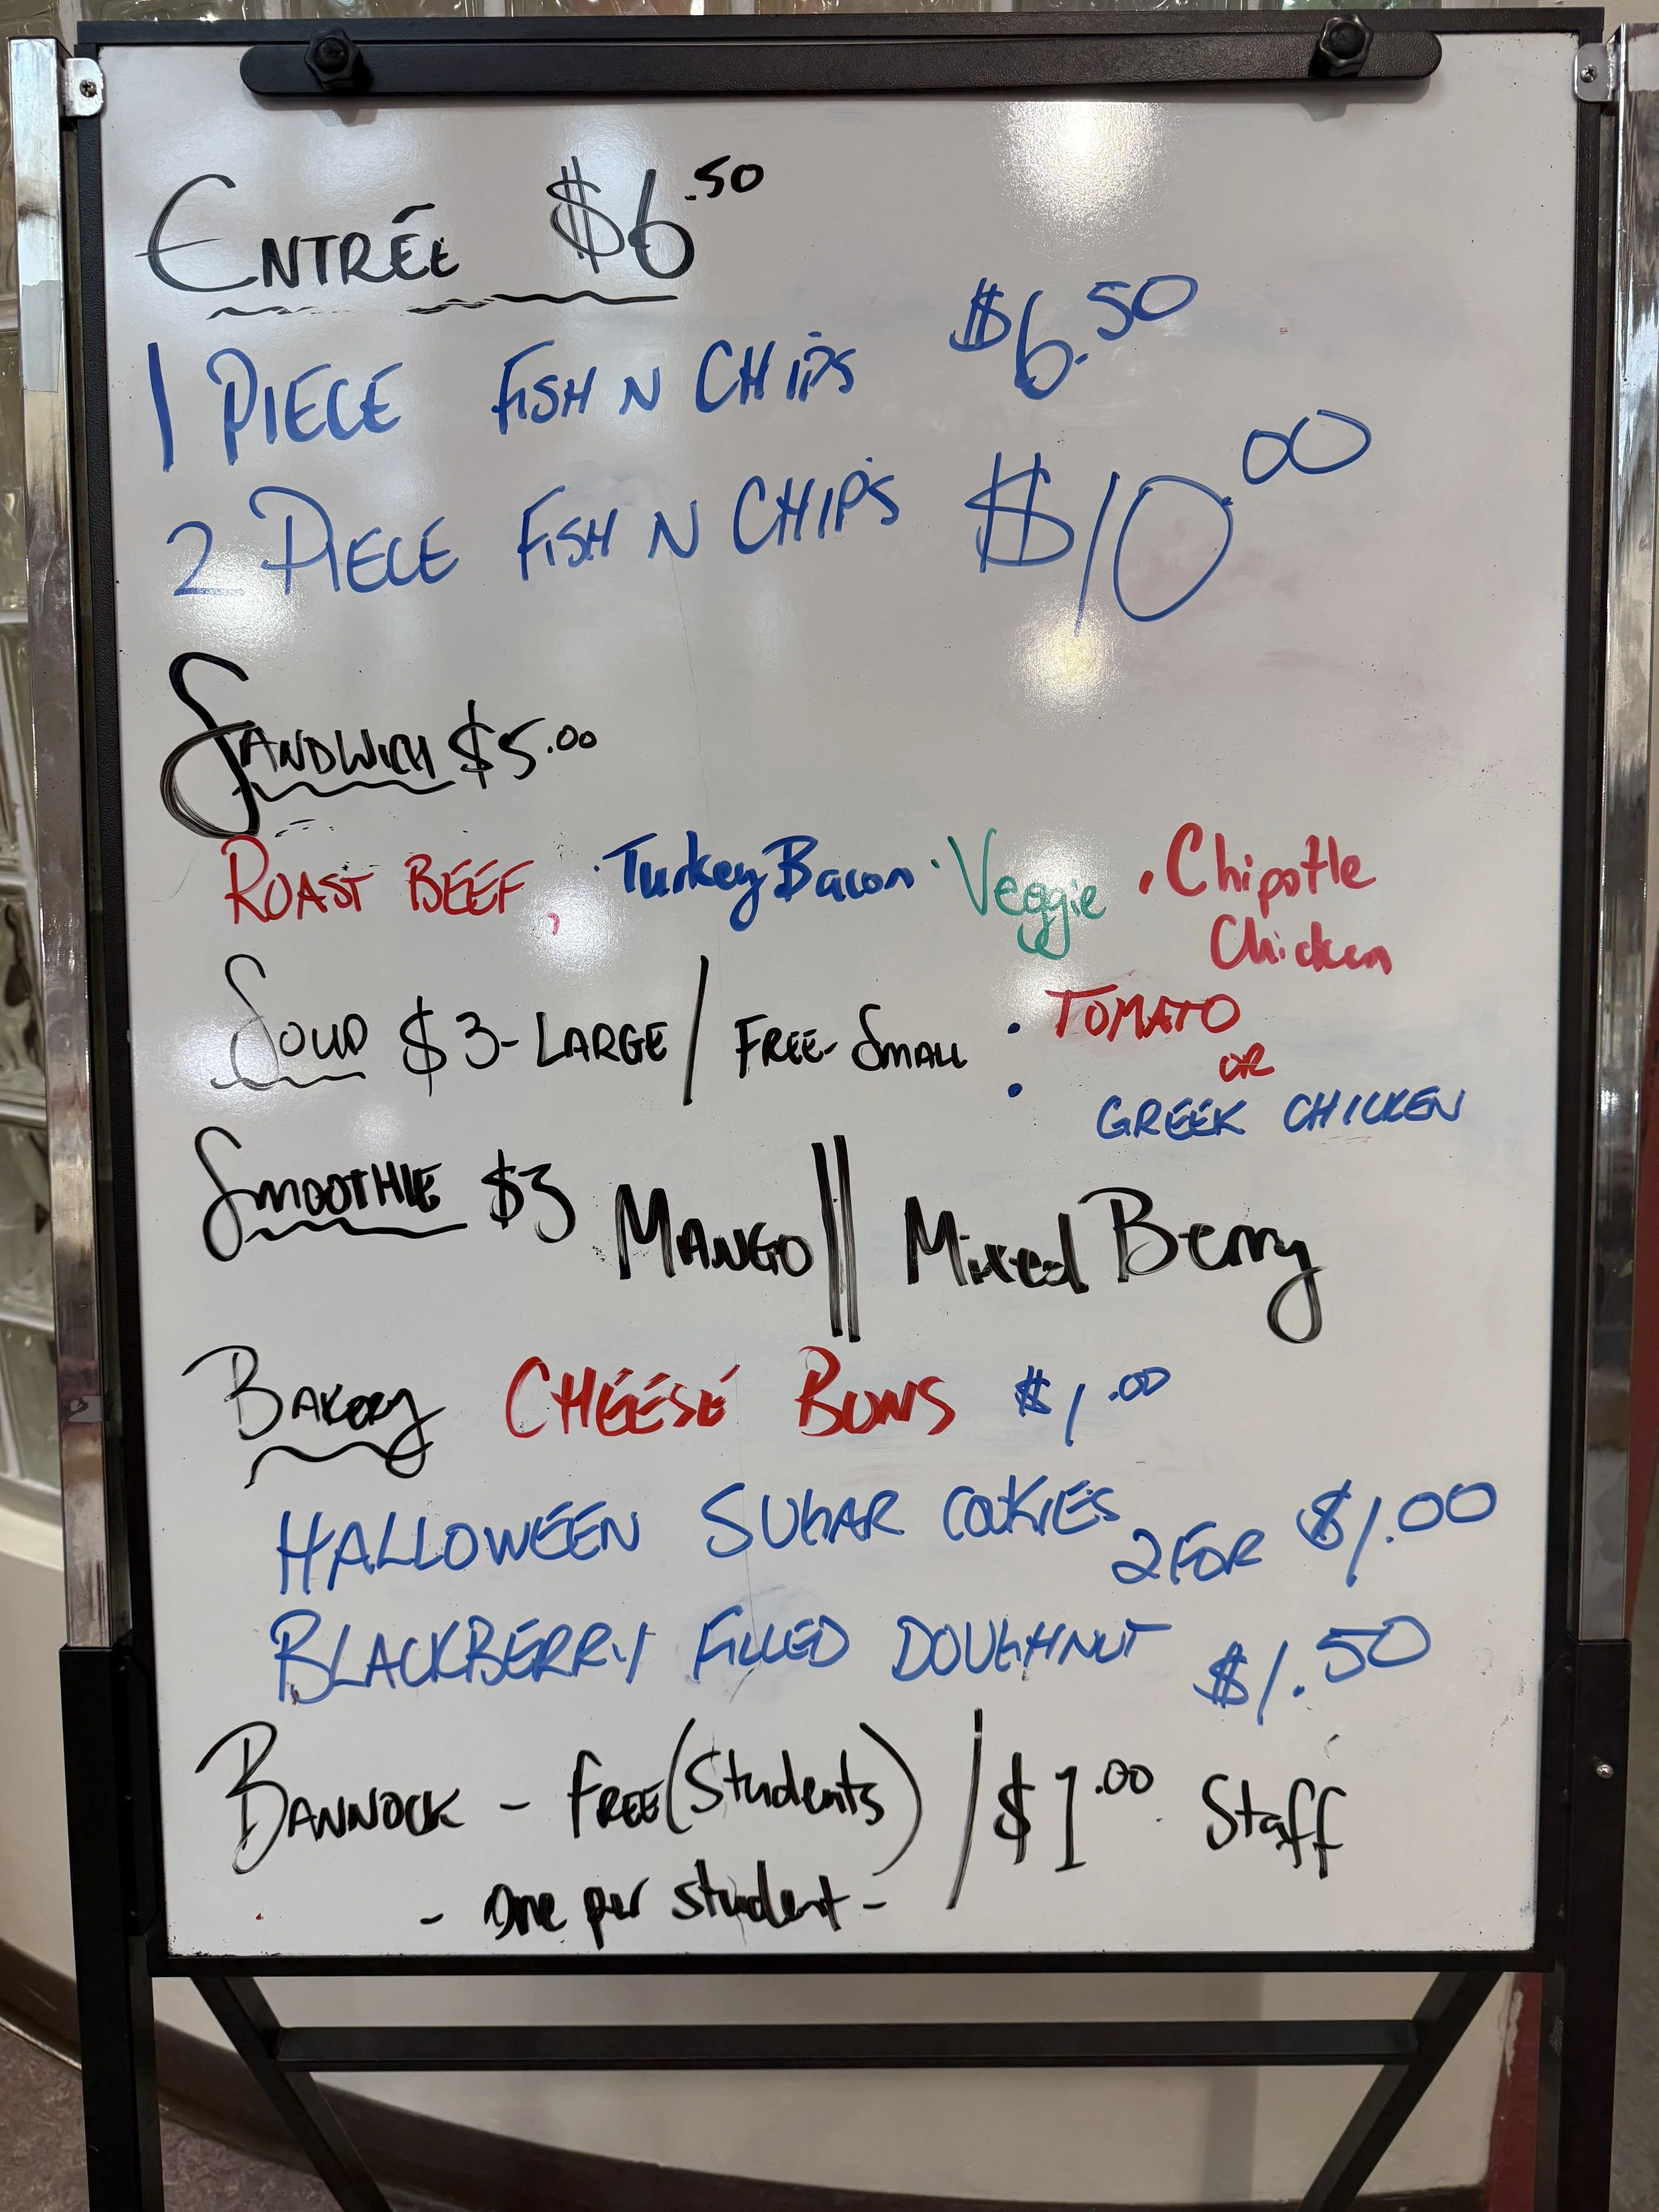 ENTRÉE $6.50
1 PIECE FISH N CHIPS $6.50
2 PIECE FISH N CHIPS $10.00
SANDWICH $5.00
ROAST BEEF, · Turkey Bacon · Veggie · Chipotle
Chicken
SOUP $3-LARGE / FREE-SMALL : • TOMATO
OR
• GREEK CHICKEN
SMOOTHIE $3 MANGO || Mixed Berry
BAKERY CHEESE BUNS $1.00
HALLOWEEN SUGAR COOKIES 2 FOR $1.00
BLACKBERRY FILLED DOUGHNUT $1.50
BANNOCK - FREE (Students) / $1.00 Staff
- One per student -